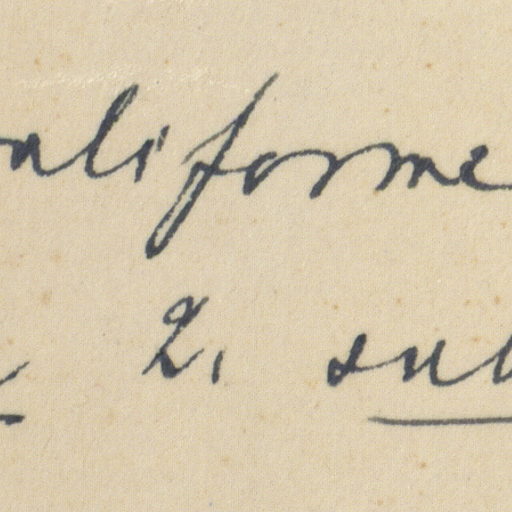 aliforme
2. sub